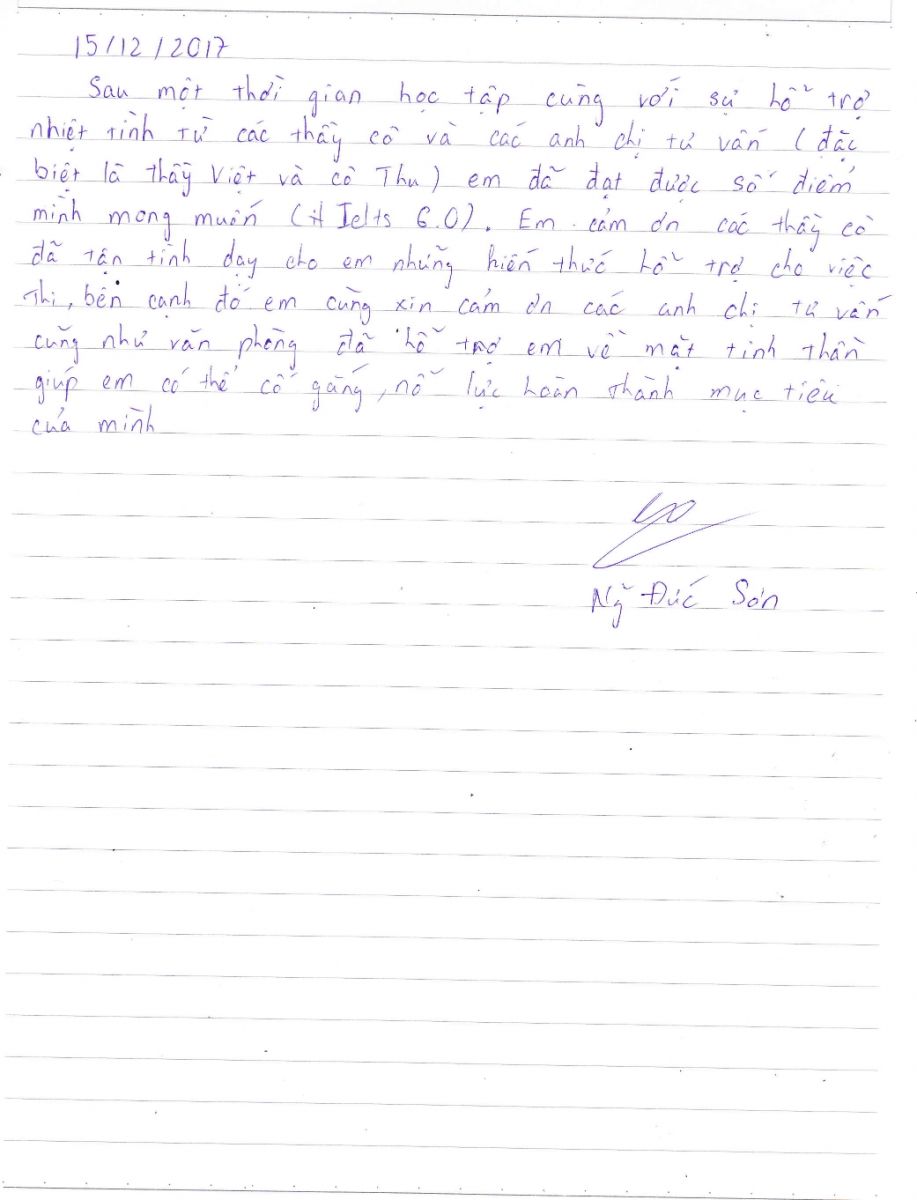 15/12/2017
Sau một thời gian học tập cùng với sự hỗ trợ
nhiệt tình từ các thầy cô và các anh chị tư vấn (đặc
biệt là thầy Việt và cô Thu) em đã đạt được số điểm
mình mong muốn (# Ielts 6.0). Em cảm ơn các thầy cô
đã tận tình dạy cho em những kiến thức hỗ trợ cho việc
Thi, bên cạnh đó em cũng xin cảm ơn các anh chị tư vấn
cũng như văn phòng đã hỗ trợ em về mặt tinh thần
giúp em có thể cố gắng, nỗ lực hoàn thành mục tiêu
của mình
Ng~ Đức Sơn